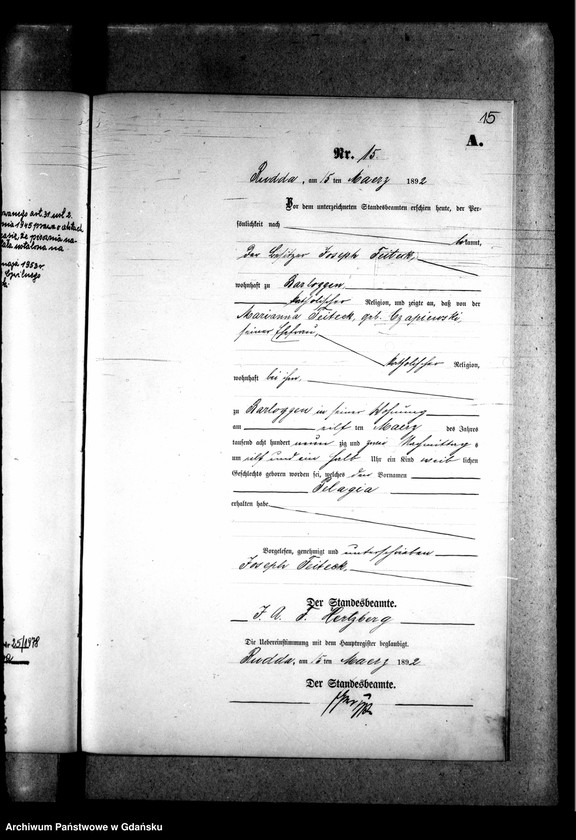 15
A.
Nr. 15.
Rudda, am 15 ten Maerz 1892
Vor dem unterzeichneten Standesbeamten erschien heute, der Per-
sönlichkeit nach
bekannt,
der Besitzer Joseph Teiteck,
wohnhaft zu Barloggen
katholischer Religion, und zeigte an, daß von der
Marianna Teiteck, geb. Czapiewski,
seiner Ehefrau,
katholischer Religion,
wohnhaft bei ihm,
zu Barloggen in seiner Wohnung
am eilf ten Maerz des Jahres
tausend acht hundert neun zig und zwei Nachmittag s
um eilf und ein halb Uhr ein Kind weib lichen
Geschlechts geboren worden sei, welches den Vornamen
Pelagia
erhalten habe.
Vorgelesen, genehmigt und unterschrieben
Joseph Teiteck,
Der Standesbeamte.
J. A. F. Hertzberg
Die Uebereinstimmung mit dem Hauptregister beglaubigt.
Rudda, am 15 ten Maerz 1892
Der Standesbeamte.
25/1978
Archiwum Państwowe w Gdańsku